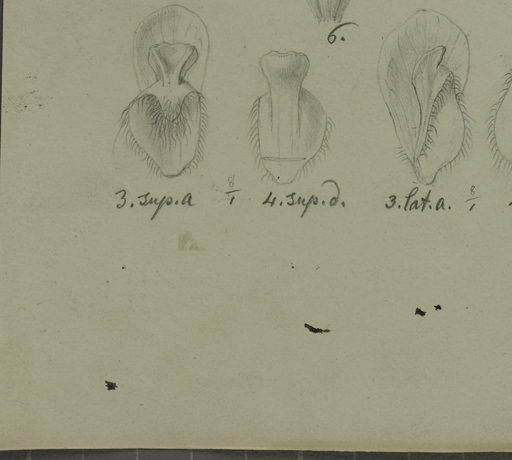 6.
3. sup. a 8/1 4. sup. d. 3. lat. a. 8/1